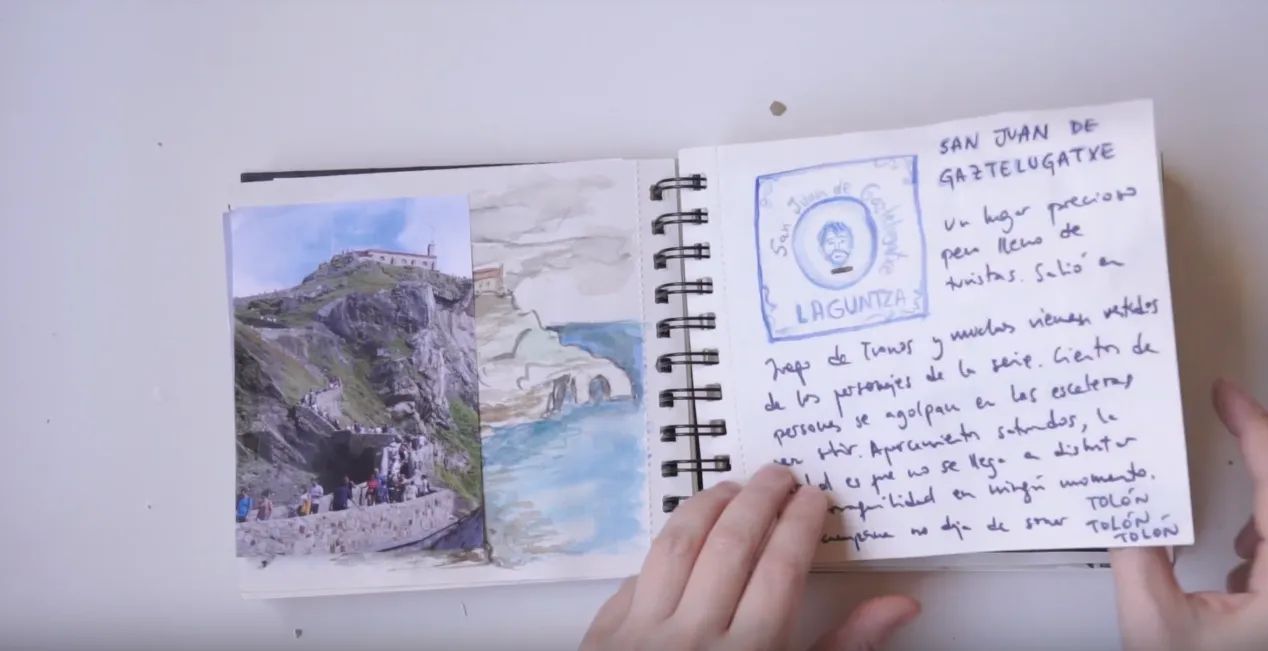 San Juan de Gaztelugatxe
LAGUNTZA
SAN JUAN DE
GAZTELUGATXE
un lugar precioso
pero lleno de
turistas. Salió en
Juego de Tronos y muchos vienen vestidos
de los personajes de la serie. Cientos de
personas se agolpan en las escaleras
subir. Aparcamientos saturados, la
es que no se llega a disfrutar
en ningún momento.
no deja de sonar TOLÓN
TOLÓN
TOLÓN